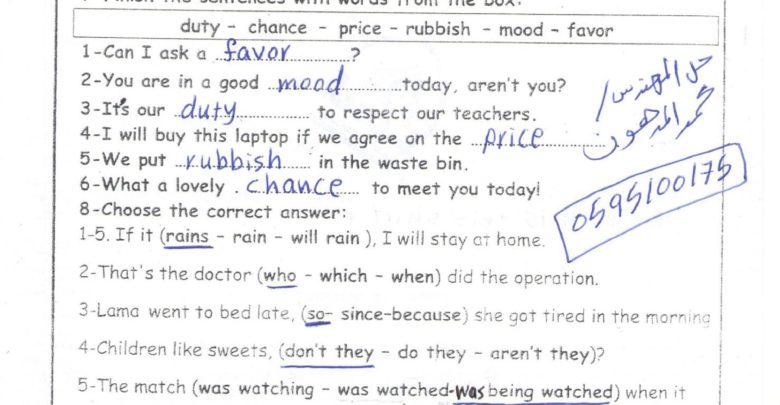 duty - chance - price - rubbish - mood - favor
1-Can I ask a favor ?
2-You are in a good mood today, aren't you?
3-It's our duty to respect our teachers.
4-I will buy this laptop if we agree on the price
5-We put rubbish in the waste bin.
6-What a lovely chance to meet you today!
حل المهندس/
محمد المدهون
0595100175
8-Choose the correct answer:
1-5. If it (rains - rain - will rain ), I will stay at home.
2-That's the doctor (who - which - when) did the operation.
3-Lama went to bed late, (so- since-because) she got tired in the morning
4-Children like sweets, (don't they - do they - aren't they)?
5-The match (was watching - was watched-was being watched) when it